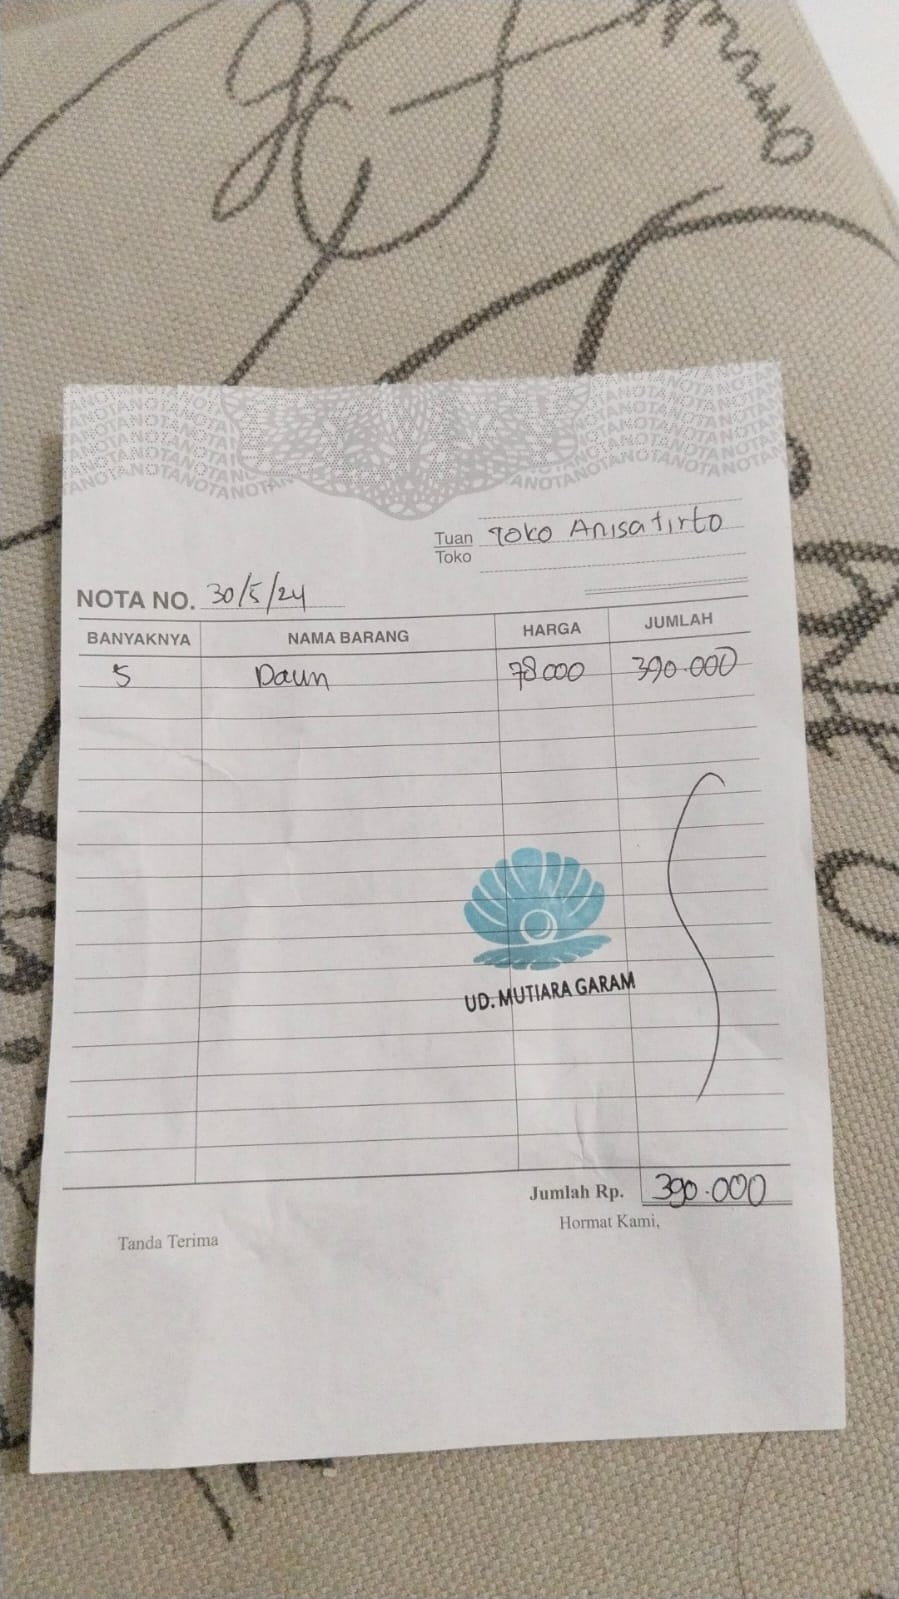 Tuan Toko Anisatirto
Toko
NOTA NO. 30/5/24
BANYAKNYA NAMA BARANG HARGA JUMLAH
5 Daun 78000 390.000
UD. MUTIARA GARAM
Jumlah Rp. 390.000
Hormat Kami,
Tanda Terima